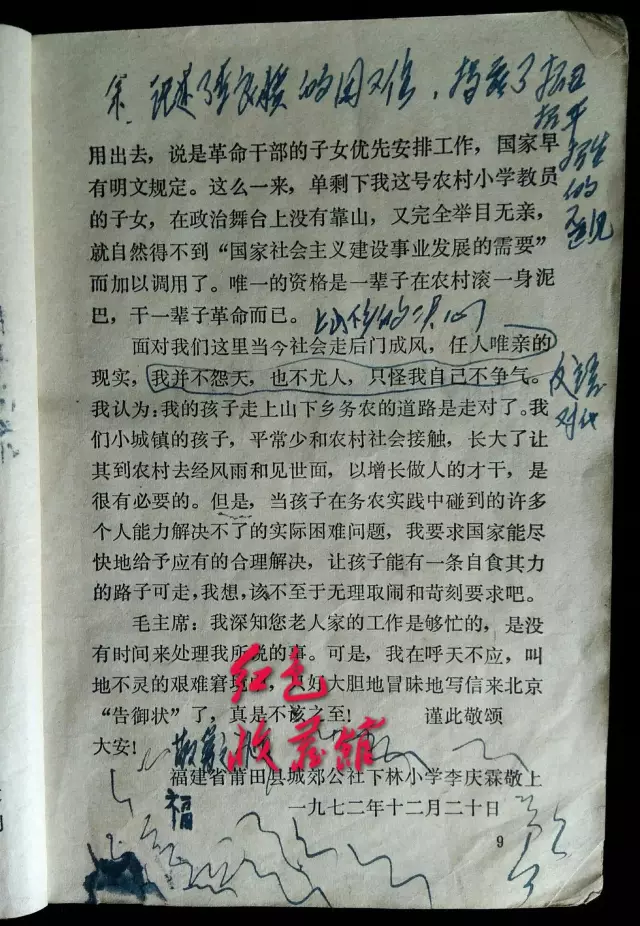 用出去，说是革命干部的子女优先安排工作，国家早
有明文规定。这么一来，单剩下我这号农村小学教员
的子女，在政治舞台上没有靠山，又完全举目无亲，
就自然得不到“国家社会主义建设事业发展的需要”
而加以调用了。唯一的资格是一辈子在农村滚一身泥
巴，干一辈子革命而已。
面对我们这里当今社会走后门成风，任人唯亲的
现实，我并不怨天，也不尤人，只怪我自己不争气。
我认为：我的孩子走上山下乡务农的道路是走对了。我
们小城镇的孩子，平常少和农村社会接触，长大了让
其到农村去经风雨和见世面，以增长做人的才干，是
很有必要的。但是，当孩子在务农实践中碰到的许多
个人能力解决不了的实际困难问题，我要求国家能尽
快地给予应有的合理解决，让孩子能有一条自食其力
的路子可走，我想，该不至于无理取闹和苛刻要求吧。
毛主席：我深知您老人家的工作是够忙的，是没
有时间来处理我所说的事。可是，我在呼天不应，叫
地不灵的艰难窘境，只好大胆地冒昧地写信来北京
“告御状”了，真是不该之至！ 谨此敬颂
大安！
福建省莆田县城郊公社下林小学李庆霖敬上
一九七二年十二月二十日
福
9
红色
收藏馆